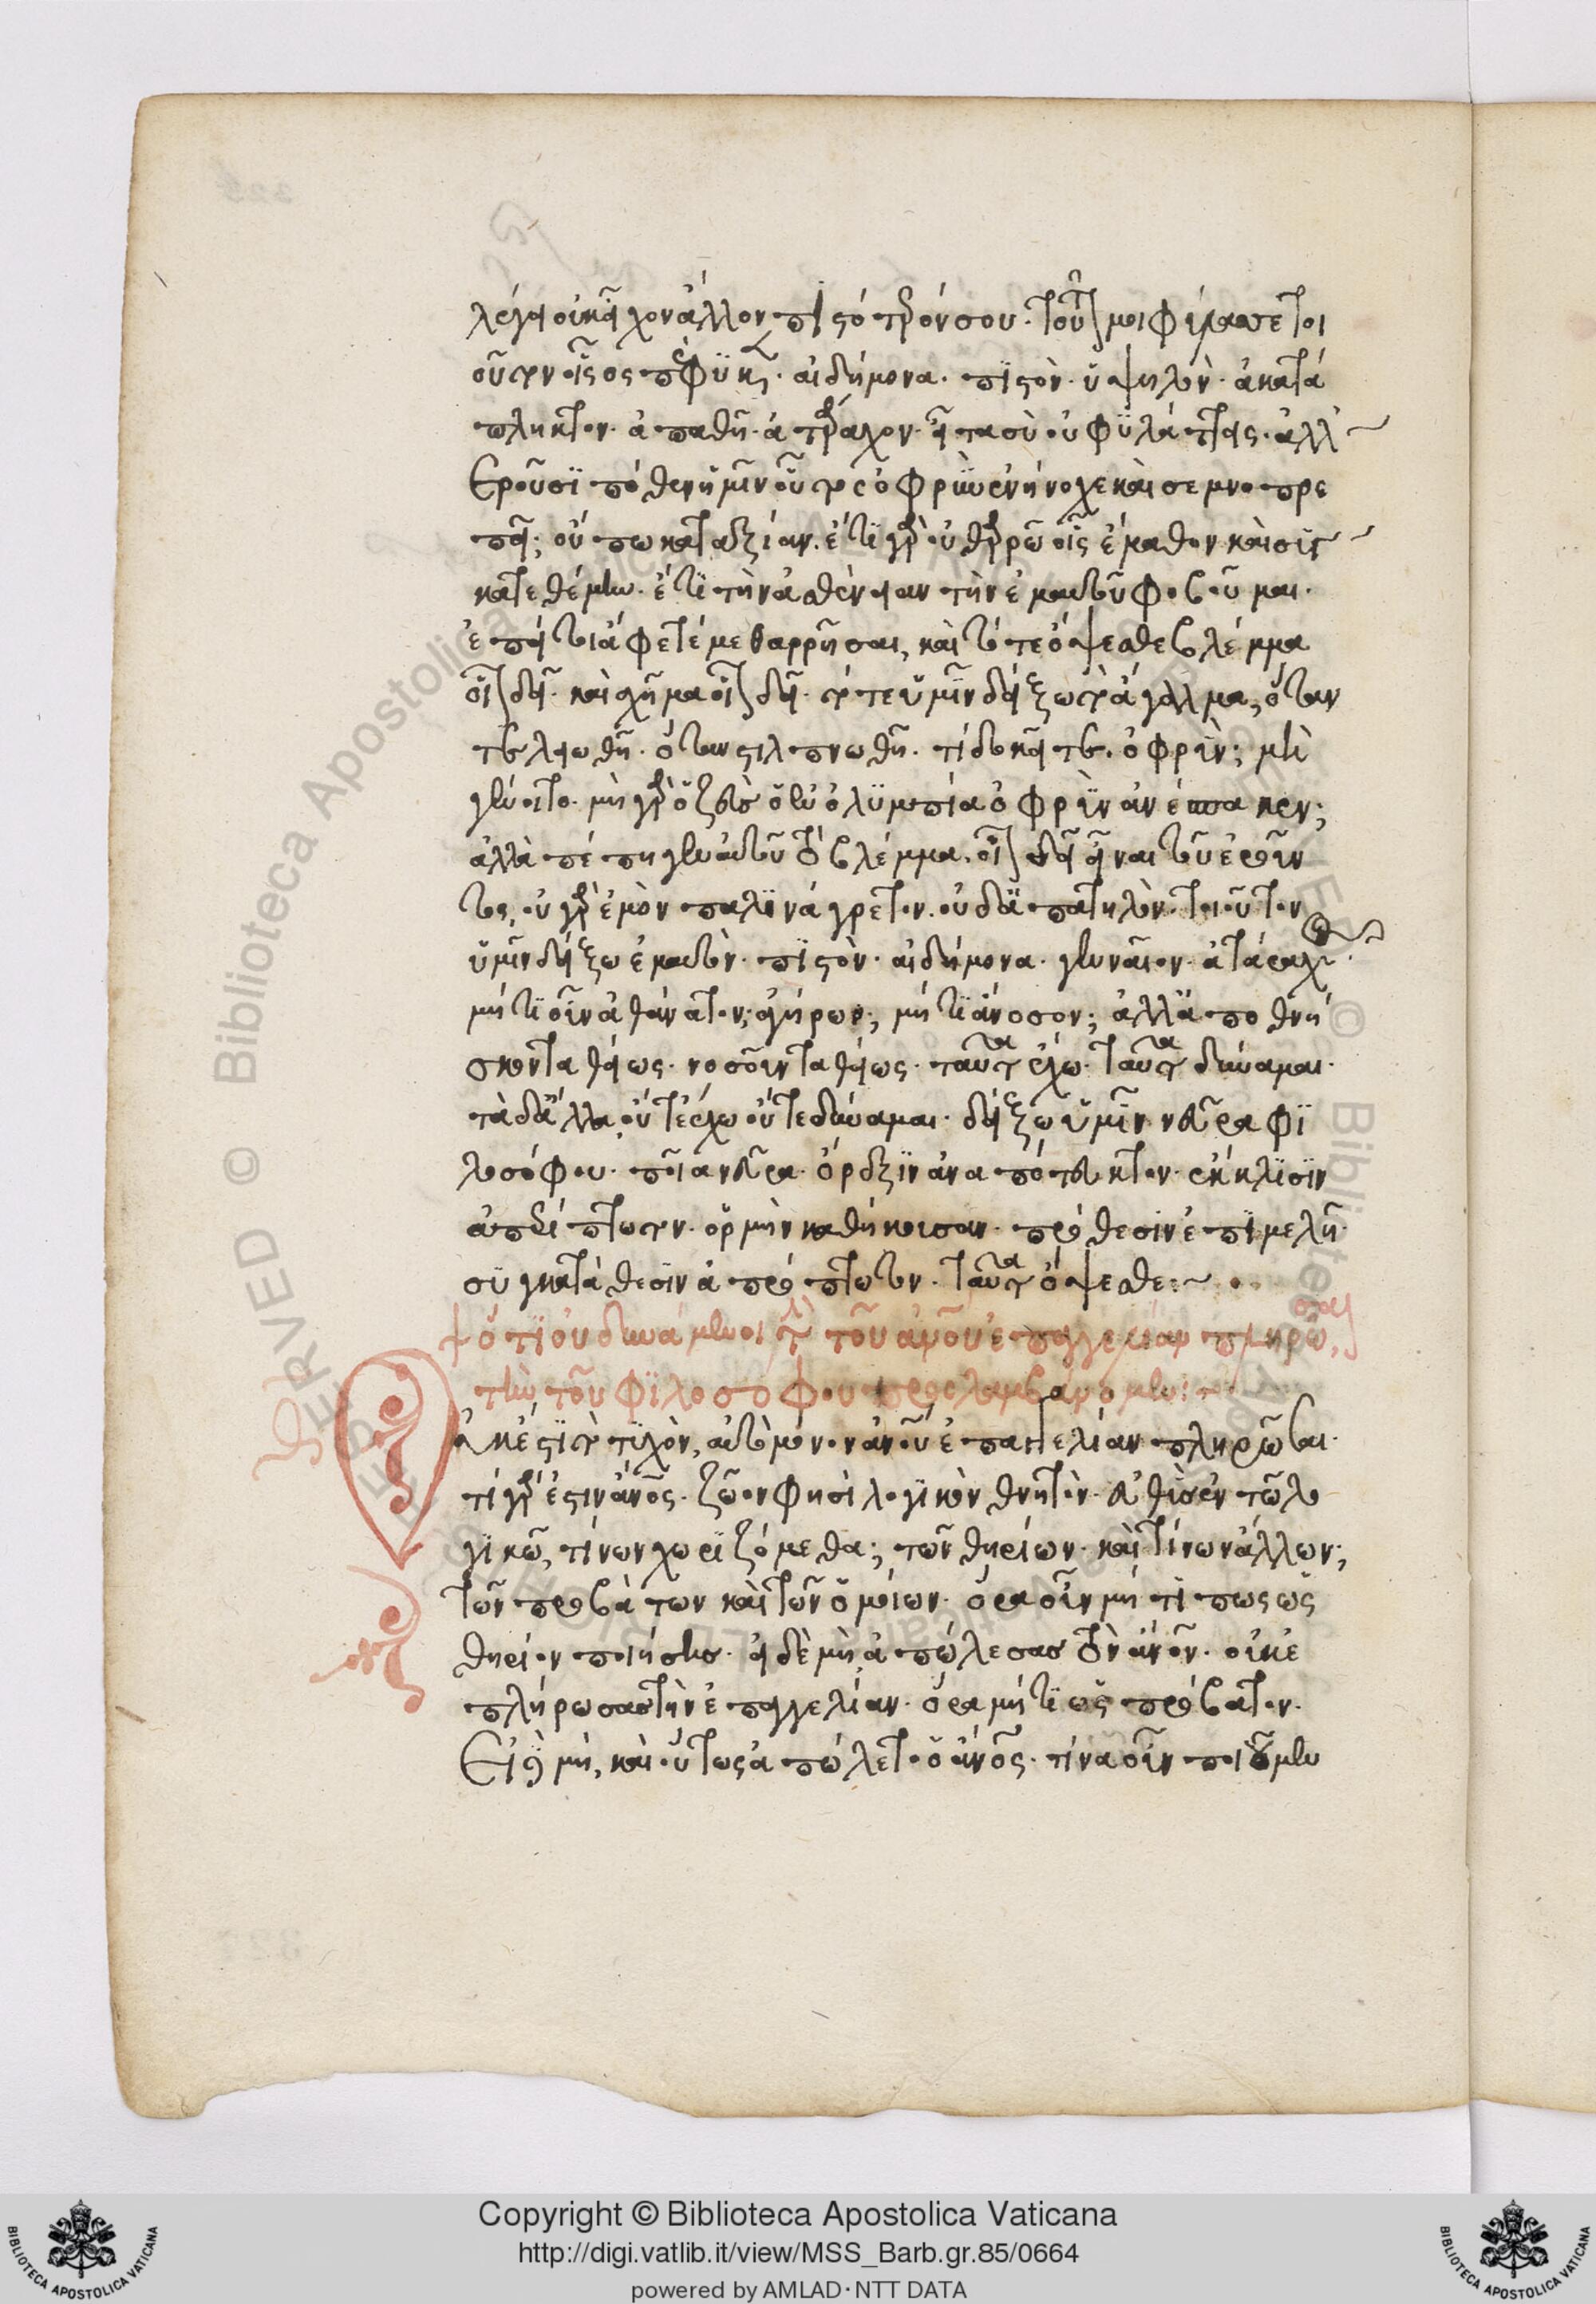 λέγει οὐκ εἶχον ἄλλον πιστότερόν σου. τοῦτόν μοι φύλασσε τοι
οῦτον οἷος πέφυκεν. αἰδήμονα. πιστὸν. ὑψηλὸν. ἀκατά
πληκτον. ἀπαθῆ. ἀτάραχον. εἶτα σὺ οὐ φυλάττεις. ἀλλ
ἐροῦσι πόθεν ἡμῖν οὗτος ὀφρὺν ἐνήνοχε καὶ σεμνοπρε
πεῖ; οὔπω κατ' ἀξίαν. ἔτι γὰρ οὐ θαρρῶ οἷς ἔμαθον καὶ συγ
κατεθέμην. ἔτι τὴν ἀσθένειαν τὴν ἐμαυτοῦ φοβοῦμαι.
ἐπεί τοι ἄφετέ με θαρρῆσαι, καὶ τότε ὄψεσθε βλέμμα
οἷον δεῖ. καὶ σχῆμα οἷον δεῖ. τότε ὑμῖν δείξω τὸ ἄγαλμα, ὅταν
τελειωθῇ. ὅταν στιλπνωθῇ. τί δοκεῖτε. ὀφρὺν; μὴ
γένοιτο. μὴ γὰρ ὁ ζεὺς ὁ ἐν ὀλυμπία ὀφρὺν ἀνέσπακεν;
ἀλλὰ πέπηγεν αὐτοῦ τὸ βλέμμα. οἷον δεῖ εἶναι τοῦ ἐροῦν
τος, οὐ γὰρ ἐμὸν παλινάγρετον. οὐδ' ἀπατηλὸν. τοιοῦτον
ὑμῖν δείξω ἐμαυτὸν. πιστὸν. αἰδήμονα. γενναῖον. ἀτάραχον.
μή τι οὖν ἀθάνατον; ἀγήρων; μή τι ἄνοσον; ἀλλ' ἀποθνή
σκοντα θείως. νοσοῦντα θείως. ταῦτα ἔχω. ταῦτα δύναμαι.
τὰ δ' ἄλλα οὔτε ἔχω οὔτε δύναμαι. δείξω ὑμῖν νεῦρα φι
λοσόφου. ποῖα νεῦρα. ὄρεξιν ἀναπότευκτον. ἔκκλισιν
ἀπερίπτωτον. ὁρμὴν καθήκουσαν. πρόθεσιν ἐπιμελῆ.
συγκατάθεσιν ἀπρόπτωτον. ταῦτα ὄψεσθε:~
ὅτι οὐ δυνάμενοι τὴν τοῦ ἀνοῦ ἐπαγγελίαν πληρῶσαι,
τὴν τοῦ φιλοσόφου προσλαμβάνομεν:~
Οὐκ ἔστι τὸ τυχὸν, αὐτὸ μόνον ἀνοῦ ἐπαγγελίαν πληρῶσαι.
τί γάρ ἐστιν ἄνος. ζῶον φησὶ λογικὸν θνητὸν. εὐθὺς ἐν τῶ λο
γικῶ, τίνων χωριζόμεθα; τῶν θηρίων. καὶ τίνων ἄλλων;
τῶν προβάτων καὶ τῶν ὁμοίων. ὅρα οὖν μή τί πως ὡς
θηρίον ποιήσης. εἰ δὲ μὴ ἀπώλεσας τὸν ἄνον. οὐκ ἐ
πλήρωσας τὴν ἐπαγγελίαν. ὅρα μή τι ὡς πρόβατον.
Εἰ δὲ μὴ, καὶ οὕτως ἀπώλετο ὁ ἄνος. τίνα οὖν ποιοῦμεν
Copyright © Biblioteca Apostolica Vaticana
http://digi.vatlib.it/view/MSS_Barb.gr.85/0664
powered by AMLAD·NTT DATA